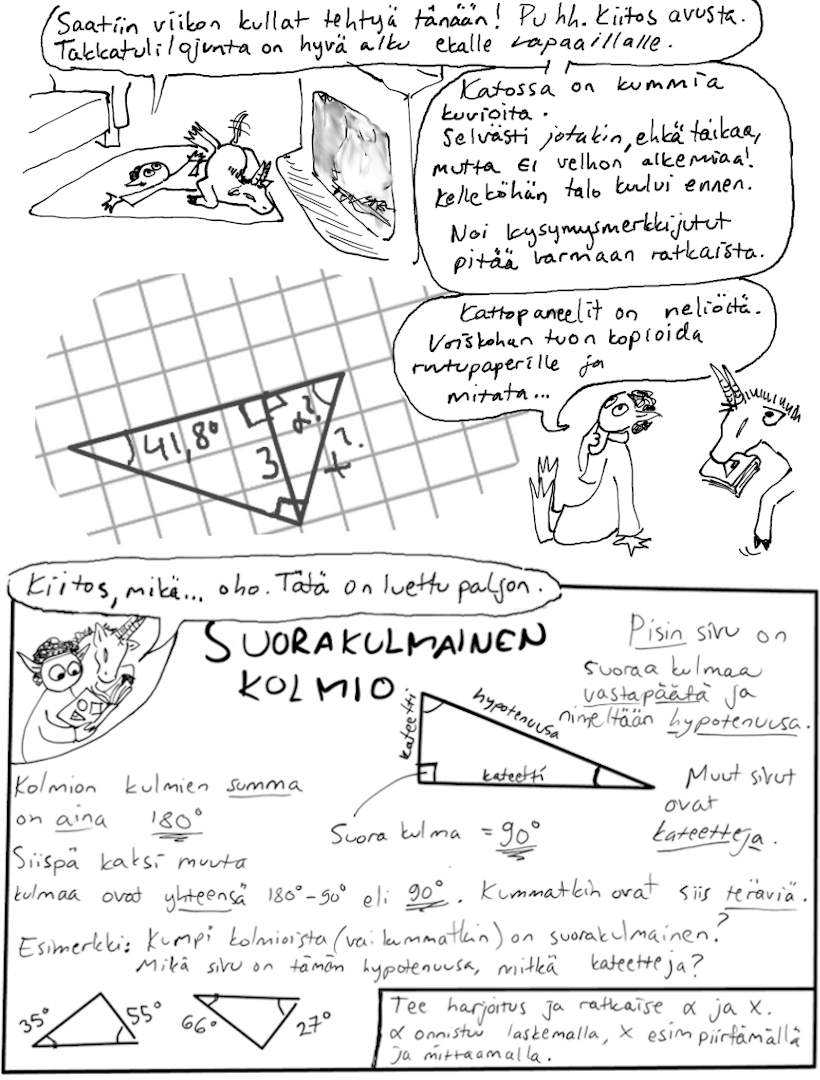 Saatiin viikon kullat tehtyä tänään! Puhh. Kiitos avusta.
Takkatulilojunta on hyvä alku ekalle vapaaillalle.
Katossa on kummia
kuvioita.
Selvästi jotakin, ehkä taikaa,
mutta EI velhon alkemiaa!
Kelleköhän talo kuului ennen.
Noi kysymysmerkkijutut
pitää varmaan ratkaista.
Kattopaneelit on neliöitä.
Voiskohan tuon kopioida
ruutupaperille ja
mitata...
41,8°
α?
3
x?
Kiitos, mikä... oho. Tätä on luettu paljon.
SUORAKULMAINEN
KOLMIO
kateetti
hypotenuusa
kateetti
Pisin sivu on
suoraa kulmaa
vastapäätä ja
nimeltään hypotenuusa.
Muut sivut
ovat
kateetteja.
Kolmion kulmien summa
on aina 180°
Suora kulma = 90°
Siispä kaksi muuta
kulmaa ovat yhteensä 180°-90° eli 90°. Kummatkin ovat siis teräviä.
Esimerkki: Kumpi kolmioista (vai kummatkin) on suorakulmainen?
Mikä sivu on tämän hypotenuusa, mitkä kateetteja?
35°
55°
66°
27°
Tee harjoitus ja ratkaise α ja x.
α onnistuu laskemalla, x esim piirtämällä
ja mittaamalla.